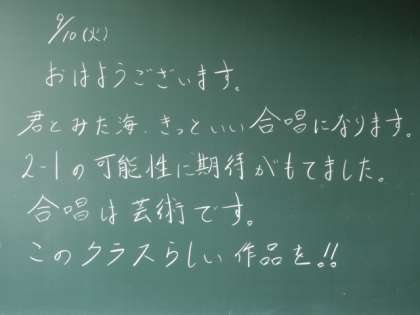 9/10(火)
おはようございます。
君とみた海、きっといい合唱になります。
2-1の可能性に期待がもてました。
合唱は芸術です。
このクラスらしい作品を!!